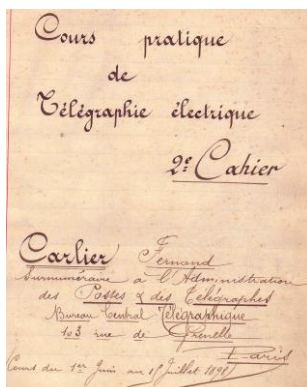 Cours pratique
de
Télégraphie électrique
2e Cahier
Carlier Fernand
Surnuméraire à l'Administration
des Postes & des Télégraphes
Bureau Central Télégraphique
103 rue de Grenelle
Paris
Cours du 1er Juin au 15 Juillet